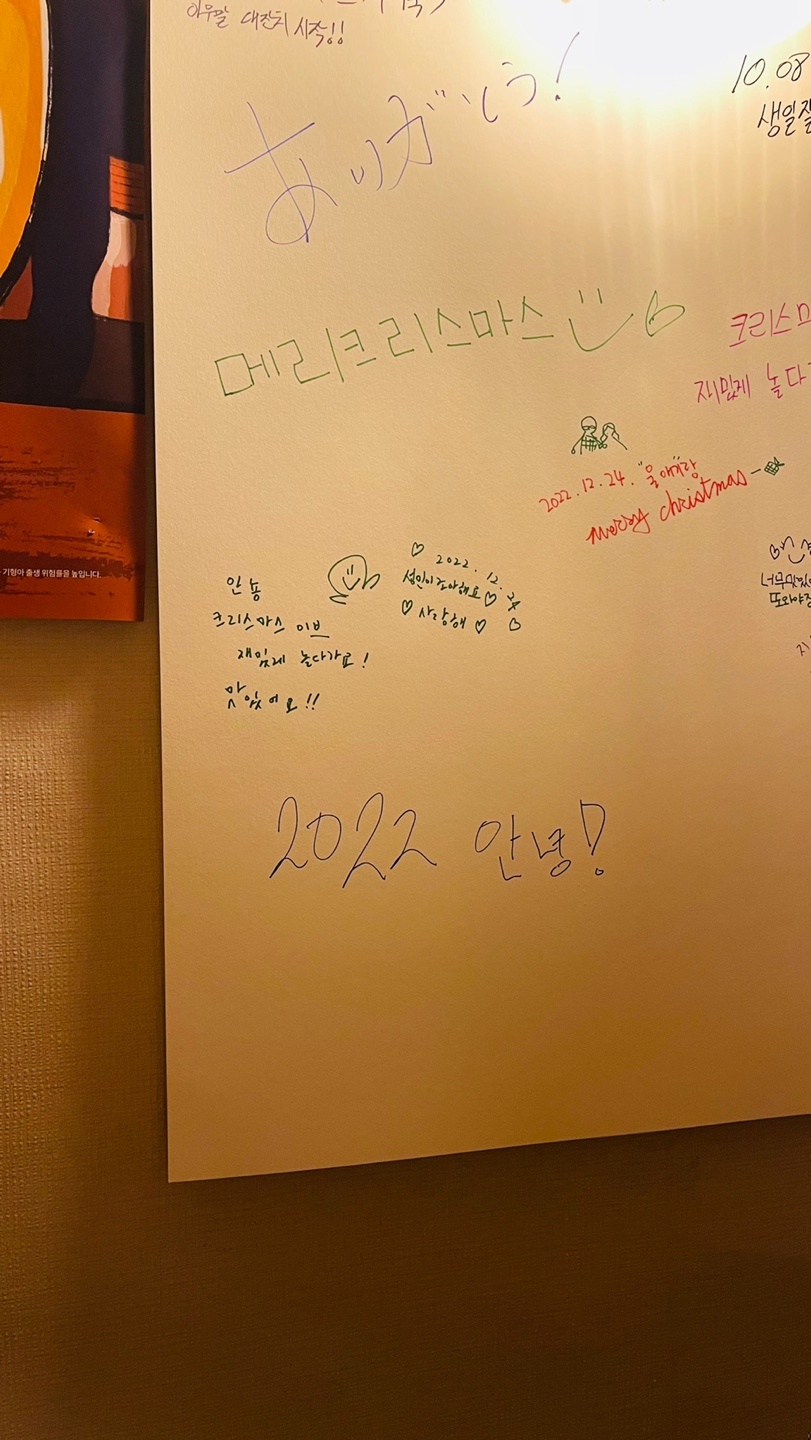 아무말 대잔치 시작!!
ありがとう!
10.08
생일
메리크리스마스
크리스마
재밌게 놀다
2022.12.24. "울애"랑
merry christmas
안뇽
크리스마스 이브
재밌게 놀다가요!
맛있어요!!
2022. 12.
사랑해
너무맛있
또와야
2022 안녕!
기형아 출생 위험률을 높입니다.